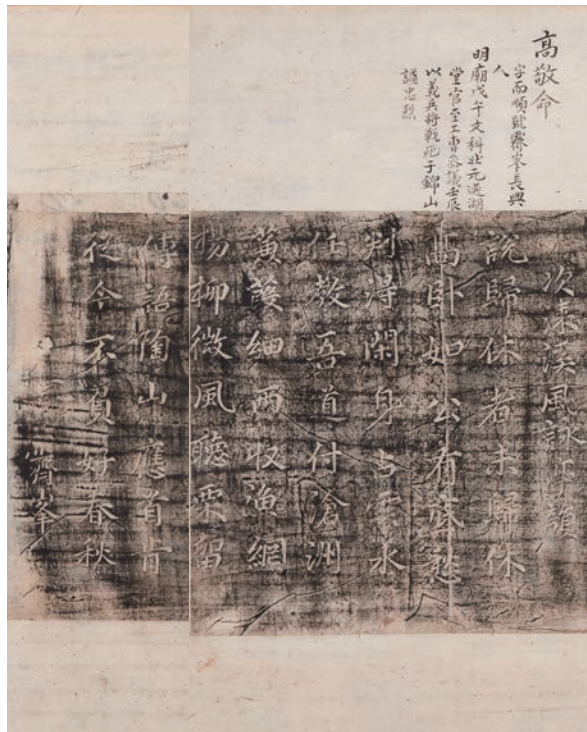 高敬命
字而順號霽峯長興
人
明廟戊午文科壯元選湖
堂官至工曹參議壬辰
以義兵將戰死于錦山
諡忠烈
次柒溪風詠亭韻
說歸休者未歸休
高臥如公有底愁
判得閑身占雲水
任教吾道付滄洲
蒹葭細雨收漁網
楊柳微風聽栗留
傳語陶山應首肯
從今不負好春秋
霽峯